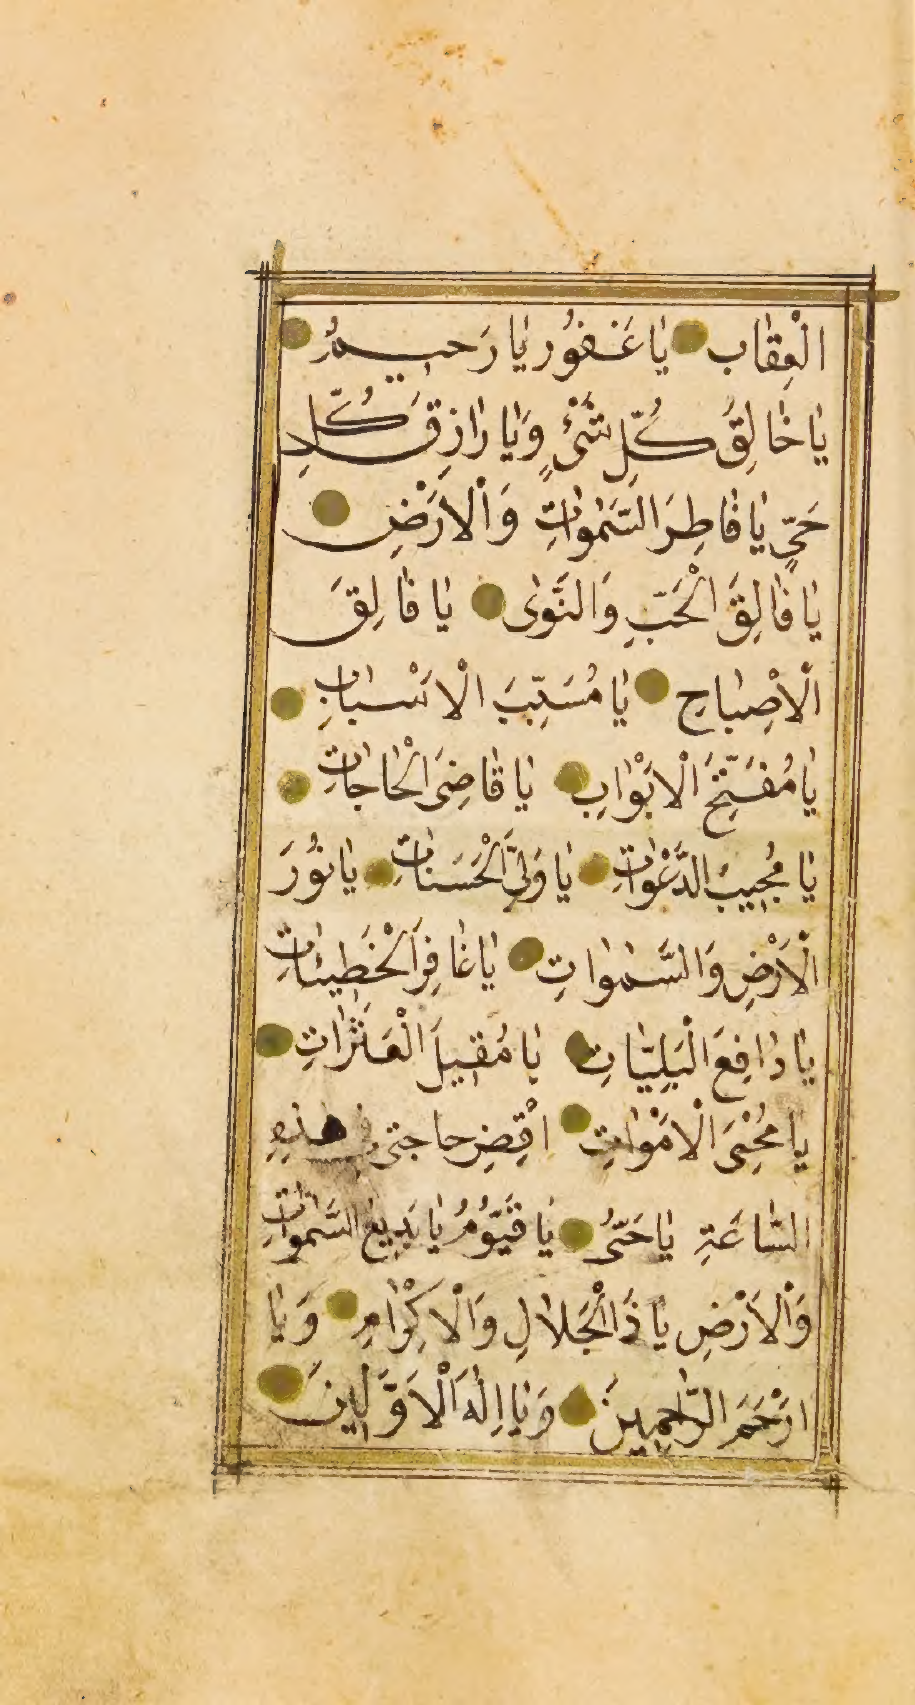 الْعِقَابِ يَا غَفُورُ يَا رَحِيمُ
يَا خَالِقَ كُلِّ شَىْءٍ وَيَا رَازِقَ كُلِّ
حَىٍّ يَا فَاطِرَ السَّمٰوَاتِ وَالْاَرْضِ
يَا فَالِقَ الْحَبِّ وَالنَّوٰى يَا فَالِقَ
الْاَصْبَاحِ يَا مُسَبِّبَ الْاَسْبَابِ
يَا مُفَتِّحَ الْاَبْوَابِ يَا قَاضِىَ الْحَاجَاتِ
يَا مُجِيبَ الدَّعْوَاتِ يَا وَلِىَّ الْحَسَنَاتِ يَا نُورَ
الْاَرْضِ وَالسَّمٰوَاتِ يَا غَافِرَ الْخَطِيئَاتِ
يَا دَافِعَ الْبَلِيَّاتِ يَا مُقِيلَ الْعَثَرَاتِ
يَا مُحْيِىَ الْاَمْوَاتِ اقْضِ حَاجَتِى فِى هٰذِهِ
السَّاعَةِ يَا حَىُّ يَا قَيُّومُ يَا بَدِيعَ السَّمٰوَاتِ
وَالْاَرْضِ يَا ذَا الْجَلَالِ وَالْاِكْرَامِ وَيَا
اَرْحَمَ الرَّاحِمِينَ وَيَا اِلٰهَ الْاَوَّلِينَ